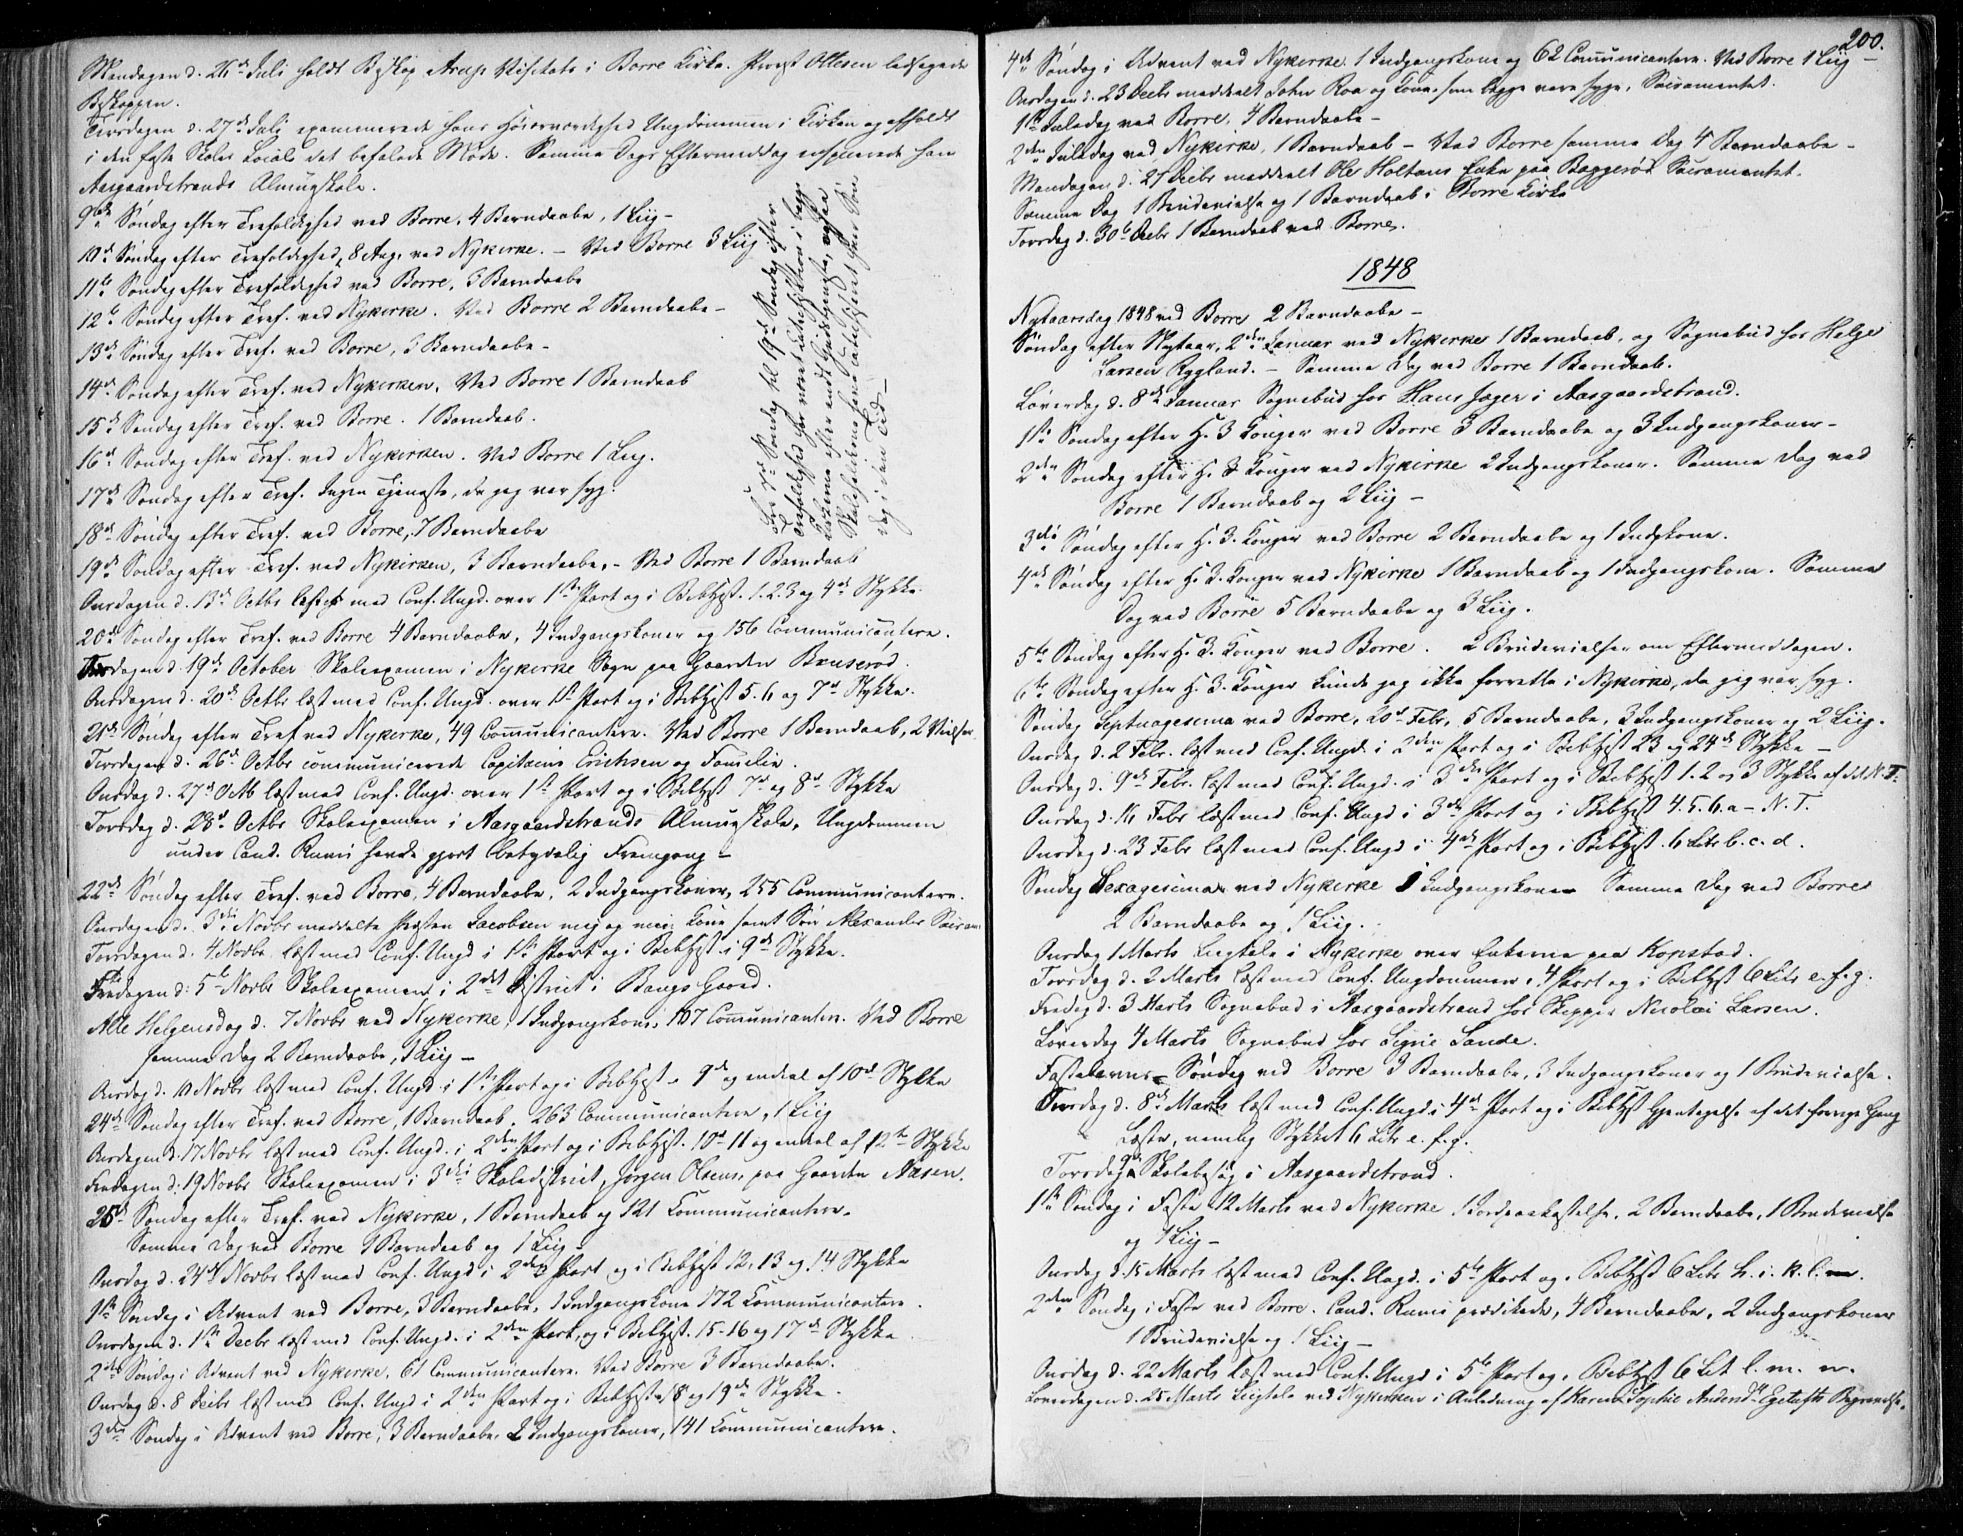 Mandagen d. 26de Juli holdt Biskop Arup Visitats i Borre Kirke. Provst Ottesen ledsagede
Biskoppen.
Tirsdagen d. 27de Juli examinerede hans Høiærværdighed Ungdommen i Kirken og afholdt
i den faste Skoles Locale det befalede Møde. Samme Dags Eftermiddag inspicerede han
Aasgaardstrands Almueskole.
9de Søndag efter Trefoldighed ved Borre, 4 Barndaabe, 1 Liig -
10de Søndag efter Trefoldighed, 8 Aug. ved Nykirke. - Ved Borre 3 Liig
11te Søndag efter Trefoldighed ved Borre, 3 Barndaabe
12te Søndag efter Tref. ved Nykirke. Ved Borre 2 Barndaabe -
13de Søndag efter Tref. ved Borre, 5 Barndaabe -
14de Søndag efter Tref. ved Nykirken. Ved Borre 1 Barndaab
15de Søndag efter Tref. ved Borre. 1 Barndaab.
16de Søndag efter Tref. ved Nykirken. Ved Borre 1 Liig.
17de Søndag efter Tref. Ingen Tjeneste, da jeg var syg.
18de Søndag efter Tref. ved Borre, 7 Barndaabe
19de Søndag efter Tref. ved Nykirken, 3 Barndaabe, - Ved Borre 1 Barndaab
Fra Søndag til 19de Søndag efter
Trefoldighed har været Catechisation i begge
Kirkerne efter endt Gudstjeneste, ogsaa
Skolelærerne have catechiseret hver Søn-
dag i den Tid -
Onsdagen d. 13de Octbr læst med Conf. Ungd. over 1ste Part og i Bibhist. 1. 2. 3 og 4de Stykke.
20de Søndag efter Tref. ved Borre 4 Barndaabe, 4 Indgangskoner og 156 Communicantere.
Tirsdagen d. 19de October Skoleexamen i Nykirke Sogn paa Gaarden Bruserød.
Onsdagen d. 20de Octbr læst med Conf. Ungd. over 1ste Part og i Bibhist 5. 6 og 7de Stykke.
21de Søndag efter Tref ved Nykirke, 49 Communicantere. Ved Borre 1 Barndaab, 2 Vielser
Tirsdagen d. 26de Octbr communicerede Capitain Erichsen og Familie.
Onsdag d. 27de Octb læst med Conf. Ungd. over 1ste Part og i Bibhist 7de og 8de Stykke
Torsdag d. 28de Octbr Skoleexamen i Aasgaardstrands Almueskole, Ungdommen
under Cand. Rumi havde gjort betydelig Fremgang -
22de Søndag efter Tref. ved Borre, 4 Barndaabe, 2 Indgangskoner, 255 Communicantere.
Onsdagen d. 3die Novbr meddelte Præsten Jacobsen mig og min Kone samt Søn Alexander Sacram.
Torsdagen d. 4 Novbr. læst med Conf. Ungd i 1ste Part og i Bibhist i 9de Stykke.
Fredagen d. 5te Novbr Skoleexamen i 2det District i Bangs Gaard.
Alle Helgensdag d. 7 Novbr ved Nykirke, 1 Indgangskone, 107 Communicanter. Ved Borre
samme Dag 2 Barndaabe, 1 Liig -
Onsdag d. 10 Novbr læst med Conf. Ungd i 1ste Part og i Bibhist. 9de og endeel af 10de Stykke
24de Søndag efter Tref. ved Borre, 1 Barndaab, 263 Communicantere, 1 Liig
Onsdagen d. 17 Novbr læst med Conf. Ungd. i 2den Part og i Bibhist. 10de 11 og endeel af 12te Stykke
Fredagen d. 19 Novbr Skoleexamen i 3die Skoledistrict, Jørgen Olsens, paa Gaarden Aasen.
25de Søndag efter Tref. ved Nykirke, 1 Barndaab og 121 Communicantere.
Samme Dag ved Borre 1 Barndaab og 1 Liig -
Onsdag d. 24de Novbr læst med Conf. Ungd i 2den Part og i Bibhist 12, 13 og 14 Stykke
1ste Søndag i Advent ved Borre, 3 Barndaabe, 1 Indgangskone 172 Communicantere.
Onsdagen d. 1ste Decbr læst med Conf. Ungd. i 2den Part, og i Bibhist. 15-16 og 17de Stykke
2den Søndag i Advent ved Nykirke, 61 Communicantere. Ved Borre 3 Barndaabe.
Onsdag d. 8 Decbr læst med Conf. Ungd i 2den Part og i Bibhist 18 og 19de Stykke.
3die Søndag i Advent ved Borre, 3 Barndaabe, 2 Indgangskoner, 141 Communicantere.
200.
4de Søndag i Advent ved Nykirke 1 Indgangskone og 62 Communicantere. Ved Borre 1 Liig -
Onsdagen d. 23 Decbr meddeelt John Roa og Kone, som begge vare syge, Sacramentet.
1ste Juledag ved Borre, 4 Barndaabe -
2den Juledag ved Nykirke, 1 Barndaab - Ved Borre samme Dag 4 Barndaabe -
Mandagen d. 27 Decbr meddeelt Ole Holtans Enke paa Baggerød Sacramentet.
Samme Dag 1 Brudevielse og 1 Barndaab i Borre Kirke
Torsdag d. 30te Decbr 1 Barndaab ved Borre.
1848
Nytaarsdag 1848 ved Borre 2 Barndaabe -
Søndag efter Nytaar, 2den Januar ved Nykirke 1 Barndaab, og Sognebud hos Helge
Larsen Rygland. - Samme Dag ved Borre 1 Barndaab.
Løverdag d. 8de Januar Sognebud hos Hans Jager i Aasgaardstrand.
1ste Søndag efter H. 3 Konger ved Borre 3 Barndaabe og 3 Indgangskoner -
2den Søndag efter H. 3 Konger ved Nykirke 2 Indgangskoner. Samme Dag ved
Borre 1 Barndaab og 2 Liig -
3die Søndag efter H. 3. Konger ved Borre 2 Barndaabe og 1 Indgkone.
4de Søndag efter H. 3. Konger ved Nykirke 1 Barndaab og 1 Indgangskone. Samme
Dag ved Borre 5 Barndaabe og 3 Liig.
5te Søndag efter H. 3. Konger ved Borre. 2 Brudevielser om Eftermiddagen.
6te Søndag efter H. 3. Konger kunde jeg ikke forrette i Nykirke, da jeg var syg.
Søndag Septuagesima ved Borre, 20de Febr, 5 Barndaabe, 3 Indgangskoner og 2 Liig.
Onsdag d. 2 Febr. læst med Conf. Ungd. i 2den Part og i Bibhist 23 og 24de Stykke -
Onsdag d. 9de Febr. læst med Conf. Ungd. i 3die Part og i Bibhist 1. 2 og 3 Stykke af det N. T.
Onsdag d. 16 Febr læst med Conf. Ungd i 3die Part og i Bibhist 4. 5. 6. a - N. T.
Onsdag d. 23 Febr læst med Conf. Ungd i 4de Part og i Bibhist. 6 Litr b. c. d.
Søndag Sexagesima ved Nykirke 1 Indgangskone Samme Dag ved Borre
2 Barndaabe og 1 Liig.
Onsdag 1 Marts Liigtale i Nykirke over Enkerne paa Kopstad.
Torsdag d. 2 Marts læst med Conf. Ungdommen i 4 Part og i Bibhist 6 Litr e. f. g.
Fredag d. 3 Marts Sognebud i Aasgaardstrand hos Skipper Nicolai Larsen.
Løverdag 4 Marts Sognebud hos Signe Sande.
Fastelavns Søndag ved Borre 3 Barndaabe, 3 Indgangskoner og 1 Brudevielse.
Onsdag d. 8de Marts læst med Conf. Ungd. i 4de Part og i Bibhist Gjentagelse af det forrige Gang
Læste, nemlig Stykket 6 Litr e. f. g.
Torsdag 9de Skolebesøg i Aasgaardstrand.
1ste Søndag i Faste 12 Marts ved Nykirke 1 Jordpaakastelse, 2 Barndaabe, 1 Brudevielse
og 1 Liig -
Onsdag d. 15 Marts læst med Conf. Ungd. i 5te Part og i Bibhist 6 Litr h. i. k. l.
2den Søndag i Faste ved Borre. Cand. Rumi prædikede, 4 Barndaabe, 2 Indgangskoner
1 Brudevielse og 1 Liig -
Onsdag d. 22 Marts læst med Conf. Ungd i 5te Part og i Bibhist 6 Lit l. m. n.
Løverdagen d. 25 Marts Liigtale ved Nykirken i Anledning af Karen Sophie Andersdr Begravelse.